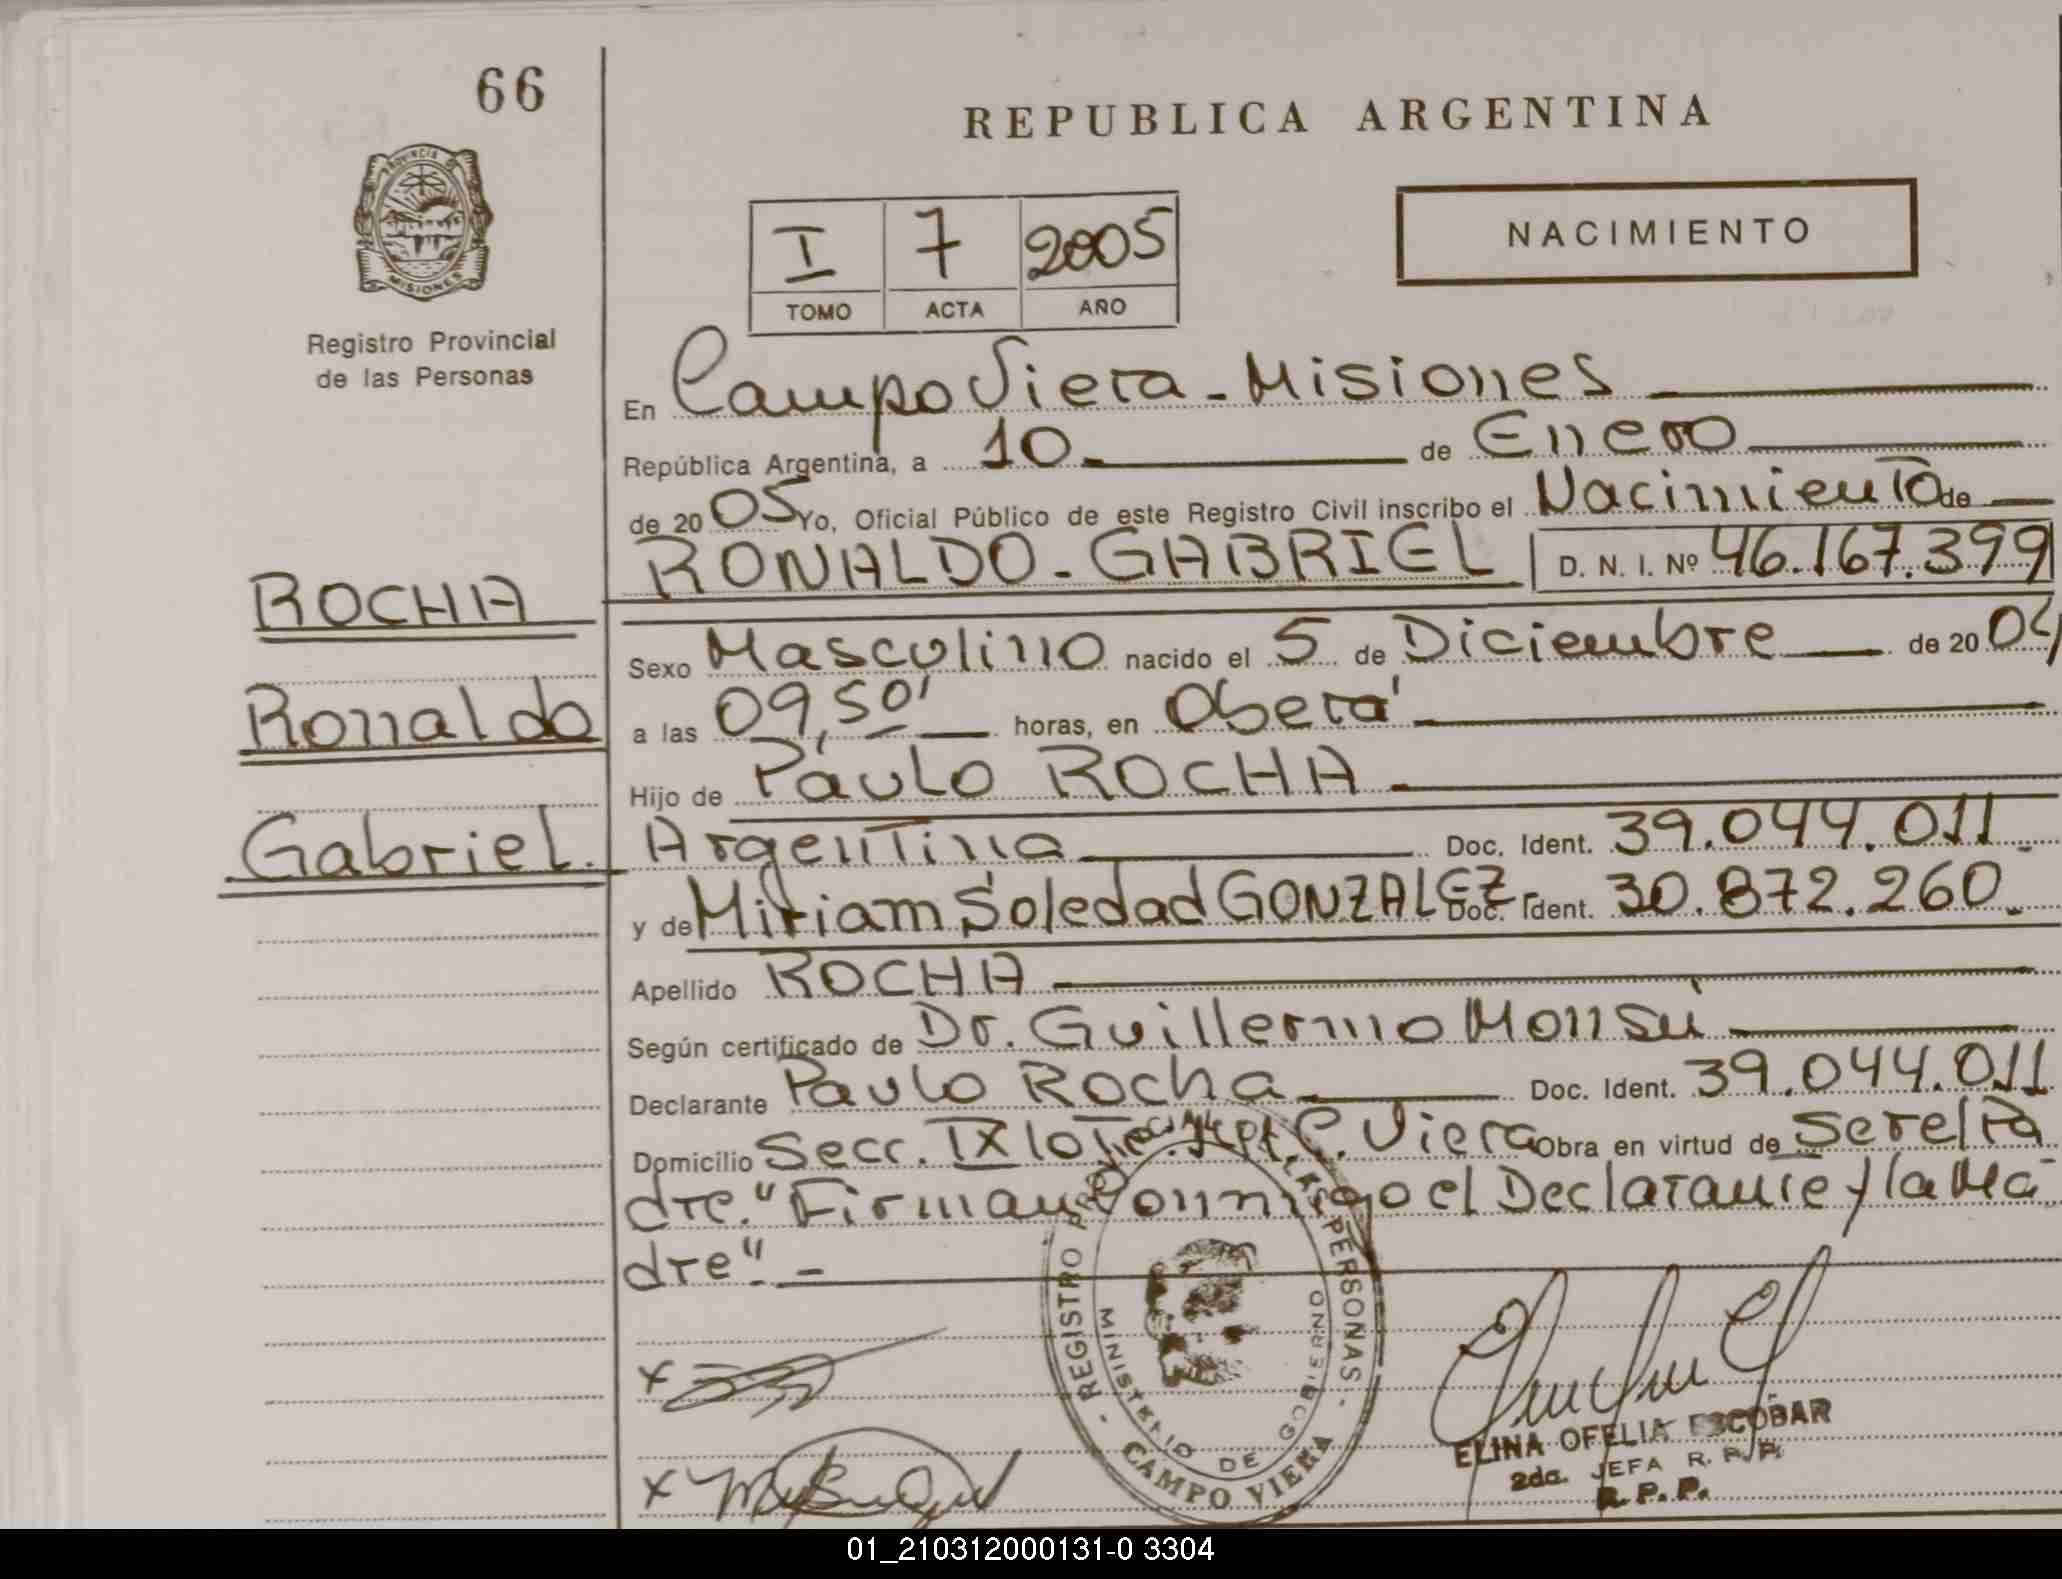 66
REPUBLICA ARGENTINA
PROVINCIA DE
MISIONES
Registro Provincial
de las Personas
NACIMIENTO
I 7 2005
TOMO ACTA AÑO
En Campo Viera - Misiones
República Argentina, a 10 de Enero
de 2005 Yo, Oficial Público de este Registro Civil inscribo el Nacimiento de
RONALDO - GABRIEL D. N. I. Nº 46.167.399
ROCHA
Ronaldo
Gabriel.
Sexo Masculino nacido el 5 de Diciembre de 2004
a las 09,50' horas, en Oberá
Hijo de Paulo ROCHA
Argentina Doc. Ident. 39.044.011
y de Miriam Soledad GONZALEZ Doc. Ident. 30.872.260
Apellido ROCHA
Según certificado de Dr. Guillermo Monsú
Declarante Paulo Rocha Doc. Ident. 39.044.011
Domicilio Secc. IX lote C. Viera Obra en virtud de ser el Pa
dre." Firman conmigo el Declarante y la Ma
dre". -
REGISTRO PROVINCIAL DE LAS PERSONAS
MINISTERIO DE GOBIERNO
CAMPO VIERA
ELINA OFELIA ESCOBAR
2da. JEFA R. P. P.
R. P. P.
01_210312000131-0 3304